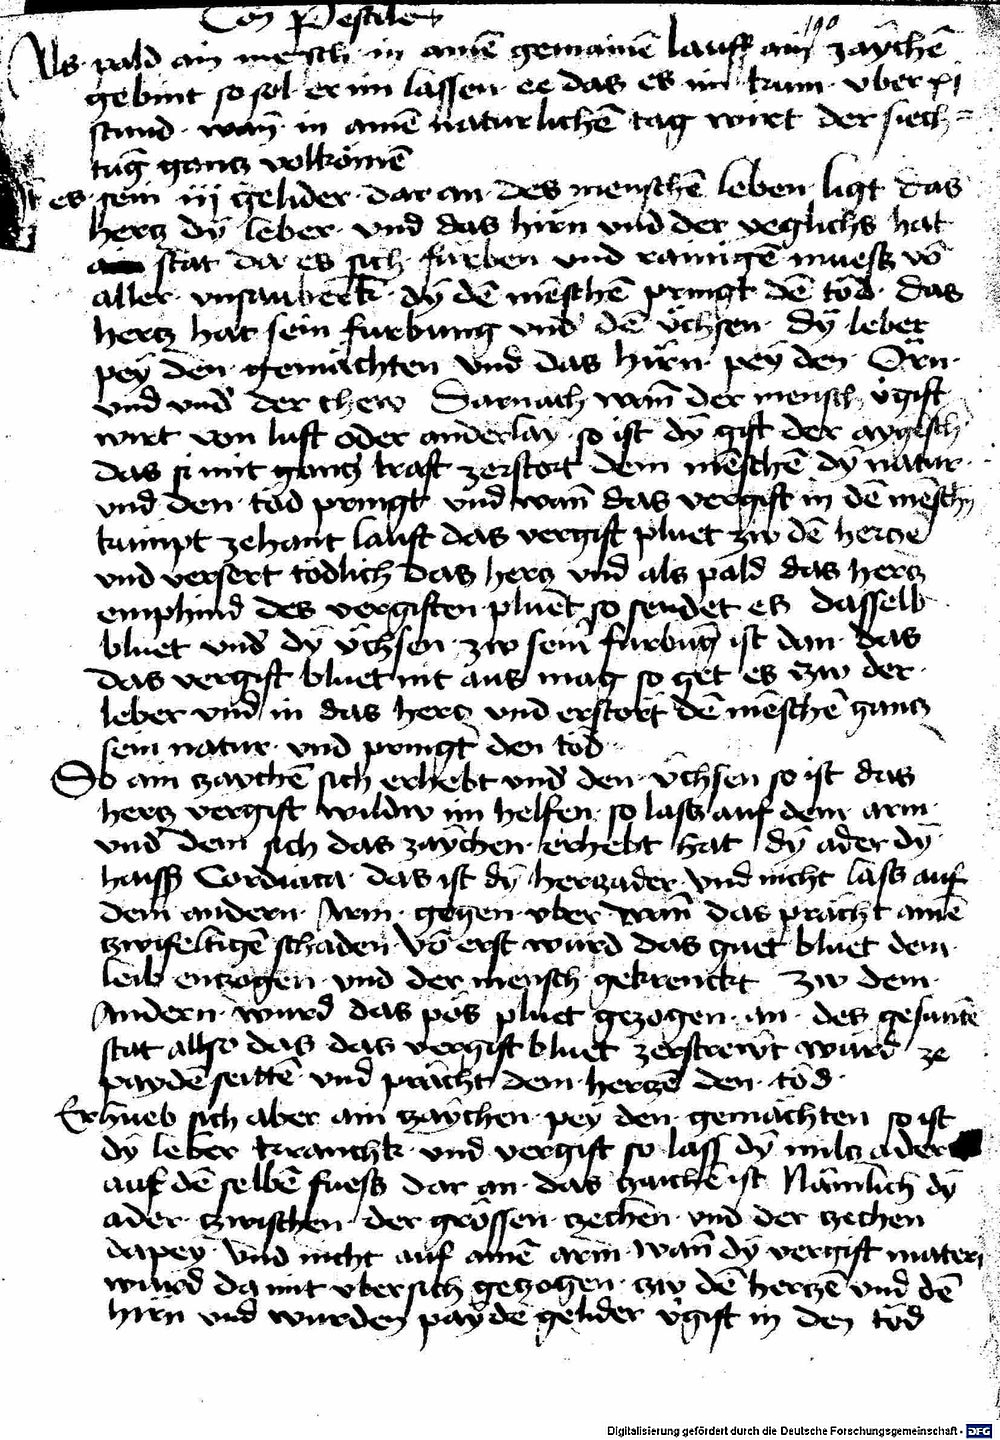 Von Pestile
190
Als pald ain mensch in ainē gemainē lauff ain zaychē
gebint so sol er im lassen ee das es im kum vber xj
stund wañ in ainē naturlichē tag wirt der siech=
tūg gancz volkömē
es sein iij gelider dar an des menschē leben ligt das
hercz dÿ leber vnd das hirn vnd der yeglichs hat
ain stat da es sich fürben vnd rainigē muesz vō
aller vnsauberk dÿ dē mēschē pringt dē tod das
hercz hat sein furbung vnd dē üchsen dÿ leber
peÿ den gemächten vnd das hirn peÿ den Örn
vnd vnd der chew Darnach wañ der mensch vgift
wirt von luft oder anderlay so ist dÿ gift der aygēsch
das si mit gancz kraft zerstort dem mēschē dÿ natur
vnd den tod pringt vnd wañ das vergift in dē mēschn
kumpt zehant lauft das vergift pluet zw dē hercze
vnd versert tödlich das hercz vnd als pald das hercz
emphind des vergiften pluet so sendet es dasselb
bluet vnd dÿ üchsen zw seim furbūg ist dan das
das vergift bluet nit aus mag so get es zw der
leber vnd in das hercz vnd erstört dē mēschē gancz
sein natur vnd pringt den tod
So ain zaychē sich erhebt vnd den üchsen so ist das
hercz vergift wildw im helfen so lass auf dem arm
vnd dem sich das zaÿchen erhebt hat dÿ ader dÿ
haisst Cordiaca das ist dÿ herczader vnd nicht lass auf
dem andern Arm gegen vber wañ das prächt ainē
zwifeltigē schaden vō erst wurd das guet bluet dem
leib enzogen vnd der mensch gekrenckt zw dem
Andern wurd das pös pluet gezogen an des gesuntē
stat allso das das vergift bluet zerstrewt wurd ze
paydē seittē vnd prächt dem herczē den tod
Erhueb sich aber ain zaÿchen peÿ den gemächten so ist
dÿ leber kranchk vnd vergift so lass dÿ milcz ader
auf dē selbē fuesz dar an das zaichē ist Nämlich dÿ
ader zwischen der grössen zechen vnd der zechen
dapey vnd nicht auf ainē arm wañ dÿ vergift materi
wurd da mit vbersich gezogen zw dē herczē vnd dē
hirn vnd wurden paydē gelider vgift in den tod
Digitalisierung gefördert durch die Deutsche Forschungsgemeinschaft - DFG